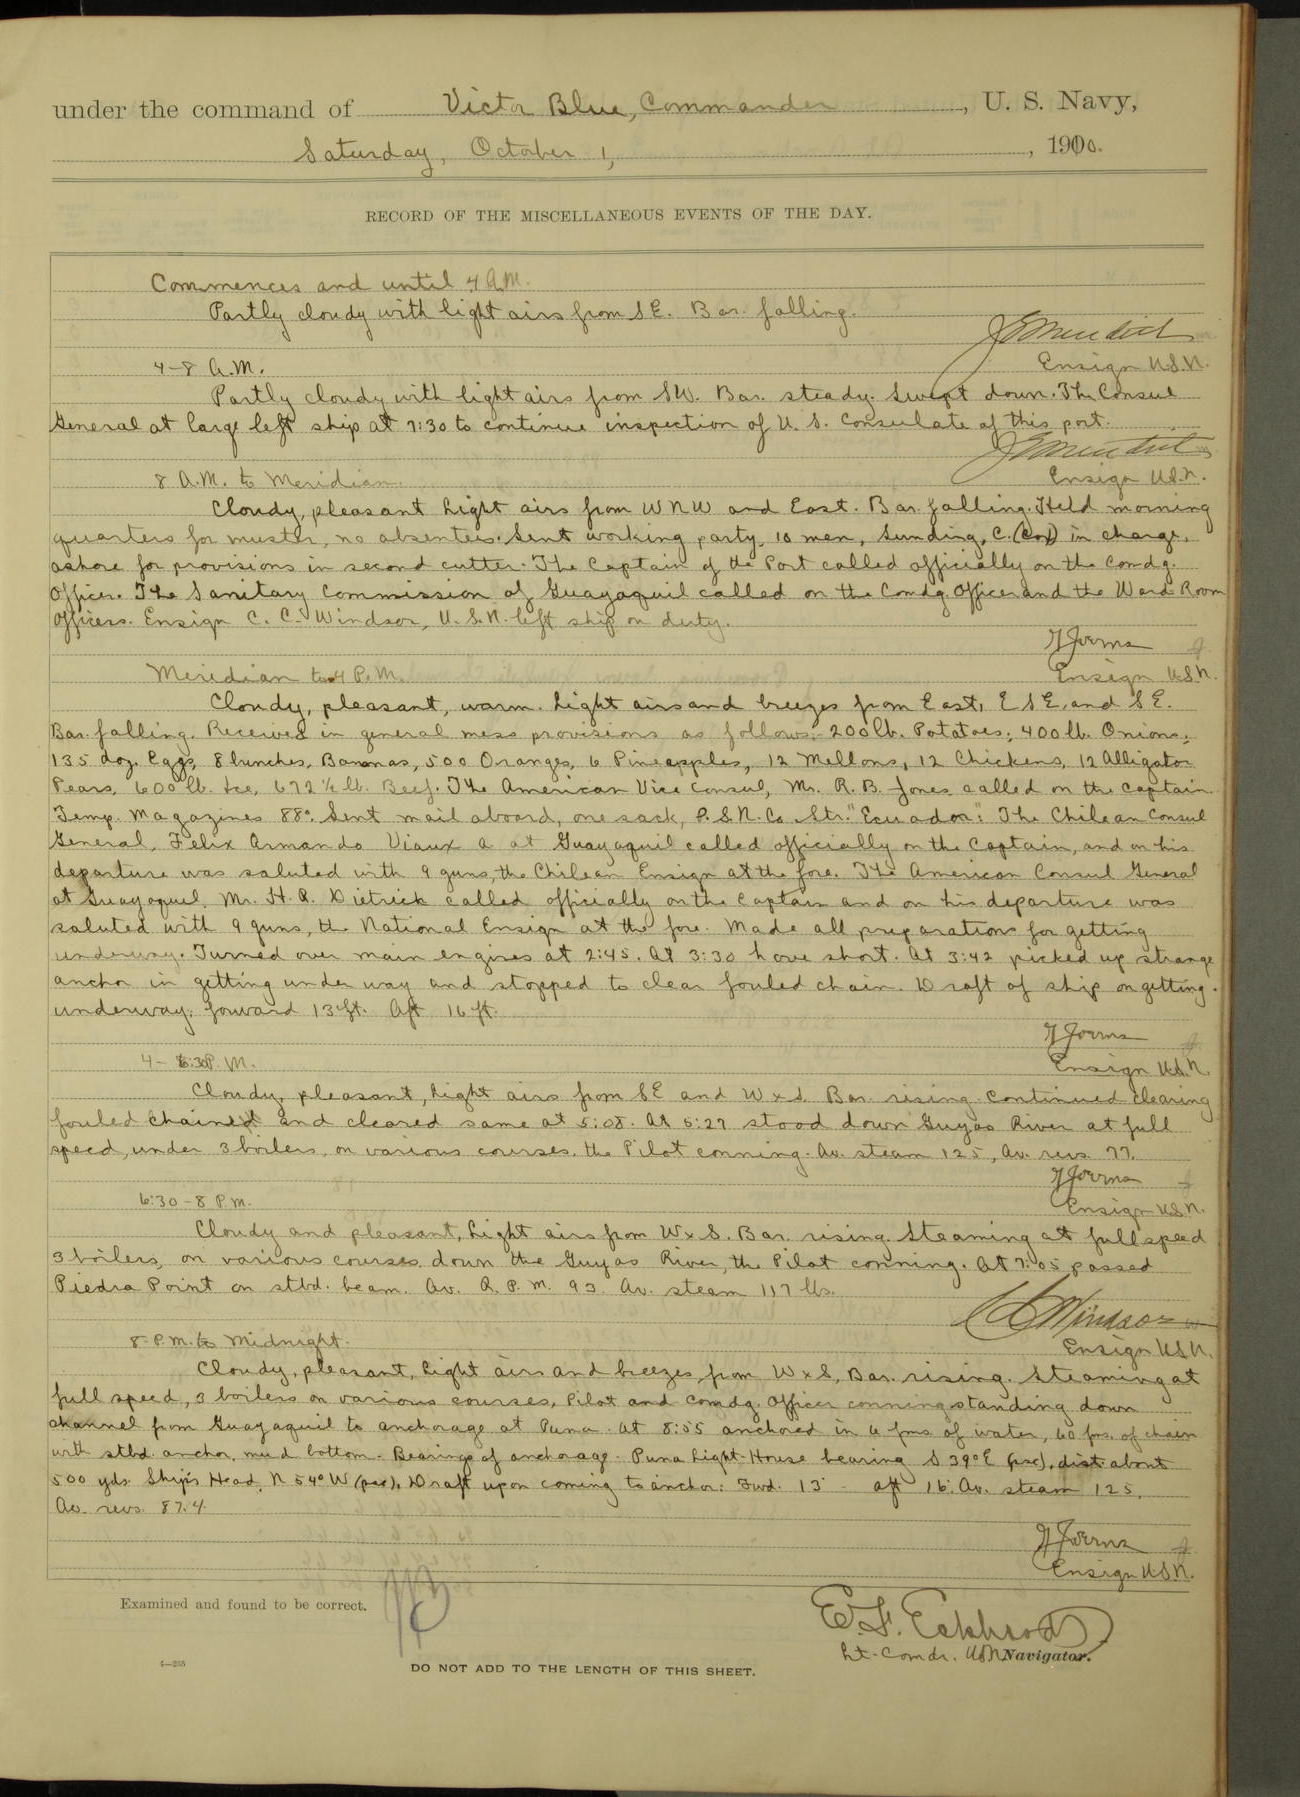 under the command of Victor Blue, Commander, U. S. Navy,
Saturday, October 1, 1910.
RECORD OF THE MISCELLANEOUS EVENTS OF THE DAY.
Commences and until 4 A.M.
Partly cloudy with light airs from SE. Bar. falling.
Ensign U.S.N.
4-8 A.M.
Partly cloudy with light airs from SW. Bar. steady. Swept down. The Consul
General at large left ship at 7:30 to continue inspection of U. S. Consulate of this port.
Ensign U.S.N.
8 A.M. to Meridian.
Cloudy, pleasant light airs from WNW and East. Bar falling. Held morning
quarters for muster, no absentees. Sent working party, 10 men, Sunding, C. (Cox) in charge,
ashore for provisions in second cutter. The Captain of the Port called officially on the Comdg.
Officer. The Sanitary Commission of Guayaquil called on the Comdg. Officer and the Ward Room
Officers. Ensign C. C. Windsor, U.S.N. left ship on duty.
Ensign U.S.N.
Meridian to 4 P.M.
Cloudy, pleasant, warm. Light airs and breezes from East, ESE and SE.
Bar. falling. Received in general mess provisions as follows:- 200 lb. Potatoes; 400 lb. Onions;
135 doz. Eggs, 8 bunches, Bananas, 500 Oranges, 6 Pineapples, 12 Mellons, 12 Chickens, 12 Alligator
Pears, 600 lb. Ice, 672 ½ lb. Beef. The American Vice Consul, Mr. R. B. Jones called on the Captain.
Temp. Magazines 88°. Sent mail aboard, one sack, P.S.N. Co. Str. "Ecuador". The Chilean Consul
General, Felix Armando Viaux A at Guayaquil called officially on the Captain, and on his
departure was saluted with 9 guns, the Chilean Ensign at the fore. The American Consul General
at Guayaquil, Mr. H. R. Dietrick called officially on the Captain and on his departure was
saluted with 9 guns, the National Ensign at the fore. Made all preparations for getting
underway. Turned over main engines at 2:45. At 3:30 hove short. At 3:42 picked up strange
anchor in getting under way and stopped to clear fouled chain. Draft of ship on getting
underway: forward 13 ft. Aft 16 ft.
Ensign U.S.N.
4-6:30 P.M.
Cloudy, pleasant, light airs from SE and WxS. Bar. rising. Continued clearing
fouled chained and cleared same at 5:08. At 5:27 stood down Guyas River at full
speed, under 3 boilers, on various courses, the Pilot conning. Av. steam 125, Av. revs. 77.
Ensign U.S.N.
6:30-8 P.M.
Cloudy and pleasant, light airs from WxS. Bar. rising. Steaming at full speed
3 boilers, on various courses, down the Guyas River, the Pilot conning. At 7:05 passed
Piedra Point on stbd. beam. Av. R.P.M. 93. Av. steam 117 lbs.
C C Windsor
Ensign U.S.N.
8 P.M. to Midnight.
Cloudy, pleasant, light airs and breezes, from WxS, Bar. rising. Steaming at
full speed, 3 boilers on various courses, Pilot and Comdg. Officer conning standing down
channel from Guayaquil to anchorage at Puna. At 8:55 anchored in 6 fms. of water, 60 fms. of chain
with stbd. anchor, mud bottom. Bearings of anchorage. Puna Light-House bearing S 39° E (psc), dist about
500 yds. Ship's Head, N 54° W (psc), Draft upon coming to anchor: Fwd. 13' - aft 16'. Av. steam 125.
Av. revs. 87.4.
Ensign U.S.N.
Examined and found to be correct.
Lt-Comdr. USN Navigator.
DO NOT ADD TO THE LENGTH OF THIS SHEET.